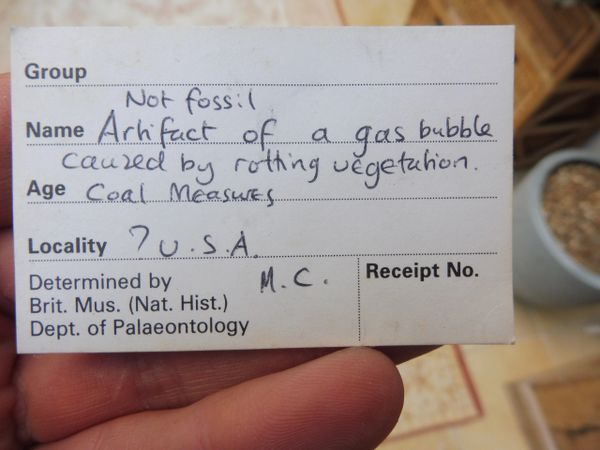 Group
Not fossil
Name Artifact of a gas bubble
caused by rotting vegetation.
Age Coal Measures
Locality ? U.S.A.
Determined by M.C. Receipt No.
Brit. Mus. (Nat. Hist.)
Dept. of Palaeontology